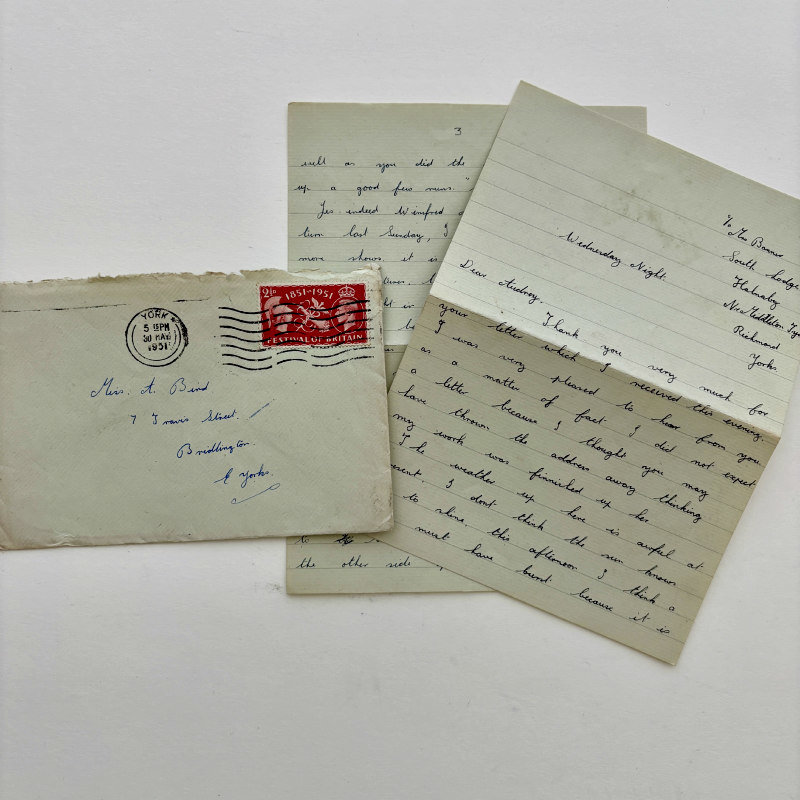 YORK
5 15 PM
30 MAY
1951
2½D
1851-1951
FESTIVAL OF BRITAIN
Miss. A. Bird
7 Travis Street.
Bridlington.
E Yorks.
3
well as you did the
up a good few runs."
Yes indeed Winifred
turn last Sunday, I
more shows it is
the other side
To Mrs Banner
South Lodge
Halnaby
Richmond
Yorks.
Wednesday Night.
Dear Audrey,
Thank you very much for
your letter which I received this evening.
I was very pleased to hear from you.
as a matter of fact I did not expect
a letter because I thought you may
have thrown the address away thinking
my work was finnished up her
The weather up here is awful at
esent. I dont think the sun knows
to shine, this afternoon I think a
must have burst because it is